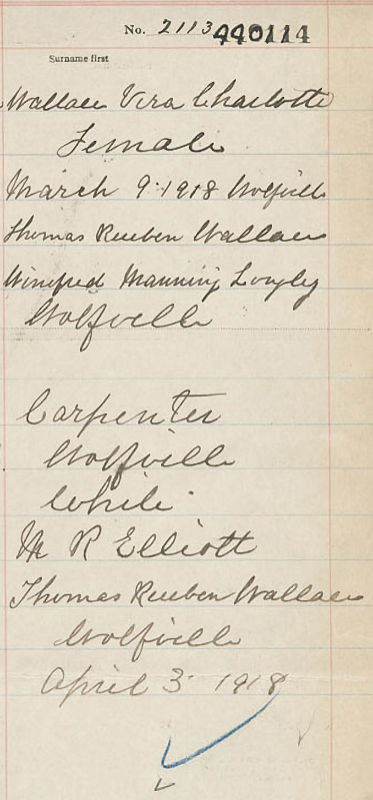 No. 2113 440114
Surname first
Wallace Vera Charlotte
Female
March 9. 1918 Wolfville
Thomas Reuben Wallace
Winifred Manning Longley
Wolfville
Carpenter
Wolfville
White
M R Elliott
Thomas Reuben Wallace
Wolfville
April 3 1918